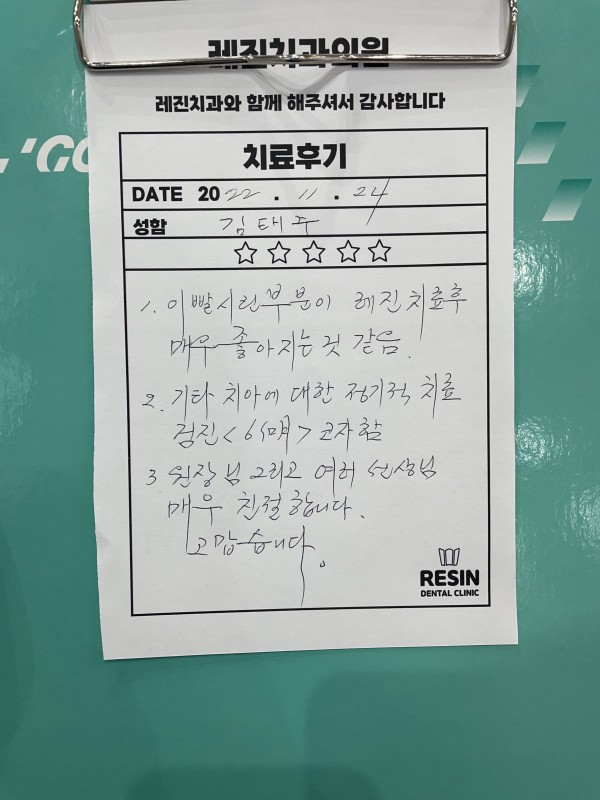 레진치과의원
레진치과와 함께 해주셔서 감사합니다
'GC
치료후기
DATE 2022 . 11 . 24
성함 김태주
1. 이빨시린부분이 레진치료후
매우 좋아지는것 같음.
2. 기타 치아에 대한 정기적 치료
검진< 6개月 >코자함
3 원장님 그리고 여러 선생님
매우 친절합니다.
고맙습니다.
RESIN
DENTAL CLINIC